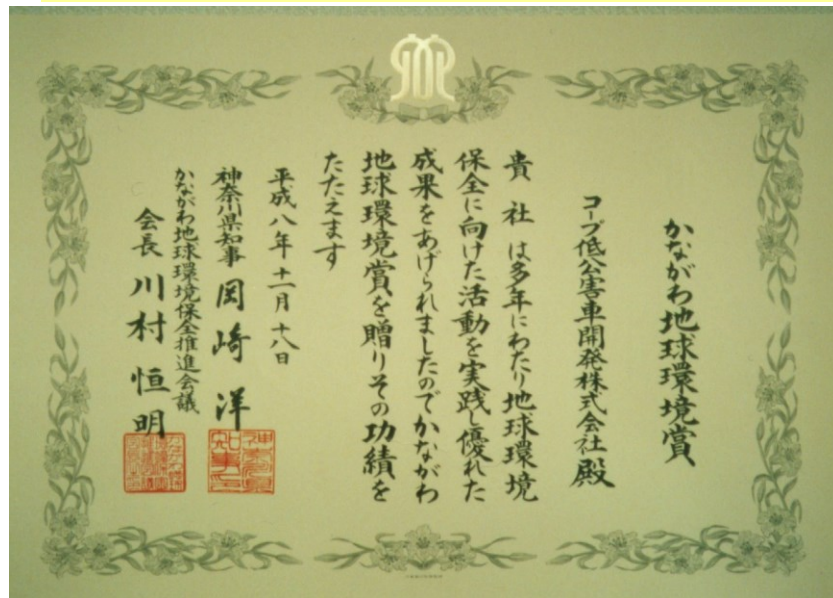 かながわ地球環境賞
コープ低公害車開発株式会社 殿
貴社 は多年にわたり地球環境
保全に向けた活動を実践し優れた
成果をあげられましたのでかながわ
地球環境賞を贈りその功績を
たたえます
平成八年十一月十八日
神奈川県知事 岡崎 洋
かながわ地球環境保全推進会議
会長 川村 恒明